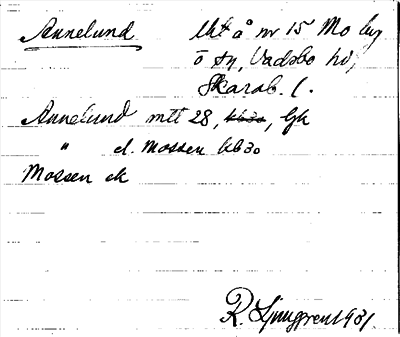 Annelund Uht å nr 15 Mo by
ö sn, Vadsbo hd,
Skarab. l.
Annelund mtl 28, kb30, Gk
" el. Mossen kb30
Mossen ek
R. Ljunggren 1931